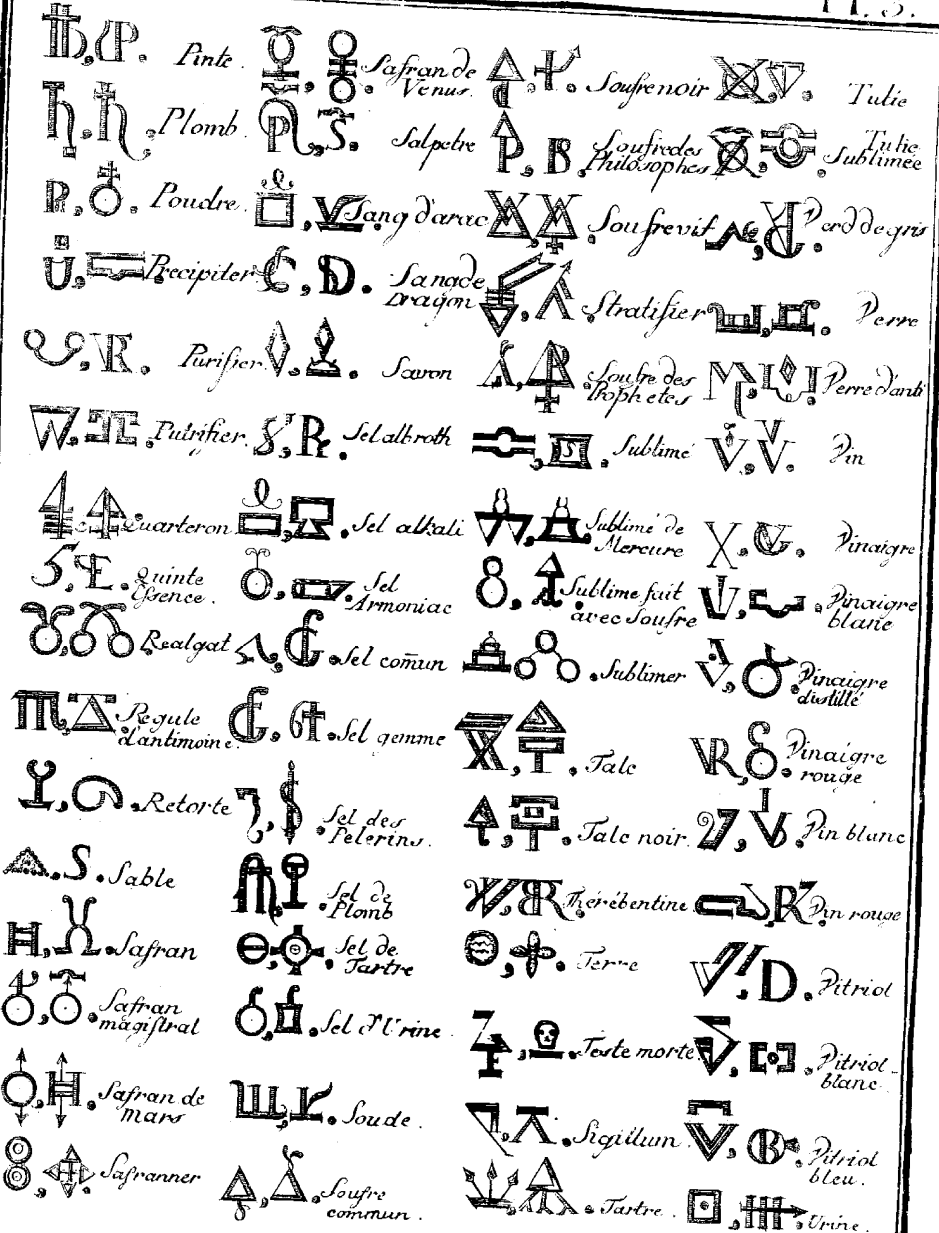 Pl. 3.
Pinte.
Plomb.
Poudre.
Precipiter
Purifier.
Putrifier.
Quarteron
Quinte
Essence.
Realgat
Regule
d'antimoine.
Retorte
Sable
Safran
Safran
magistral
Safran de
mars
Safranner
Safran de
Venus.
Salpetre
Sang d'arac
Sang de
Dragon
Savon
Sel albroth
Sel alkali
Sel
Armoniac
Sel comun
Sel gemme
Sel des
Pelerins.
Sel de
Plomb
Sel de
Tartre
Sel d'Urine.
Soude.
Soufre
commun.
Soufre noir
Soufre des
Philosophes
Soufre vif
Stratifier
Soufre des
Prophetes
Sublimé
Sublimé de
Mercure
Sublime fait
avec Soufre
Sublimer
Talc
Talc noir.
Thérébentine
Terre
Teste morte
Sigillum.
Tartre.
Tutie
Tutie
Sublimée
Verd de gris
Verre
Verre d'anti
Vin
Vinaigre
Vinaigre
blanc
Vinaigre
distillé
Vinaigre
rouge
Vin blanc
Vin rouge
Vitriol
Vitriol
blanc.
Vitriol
bleu.
Urine.